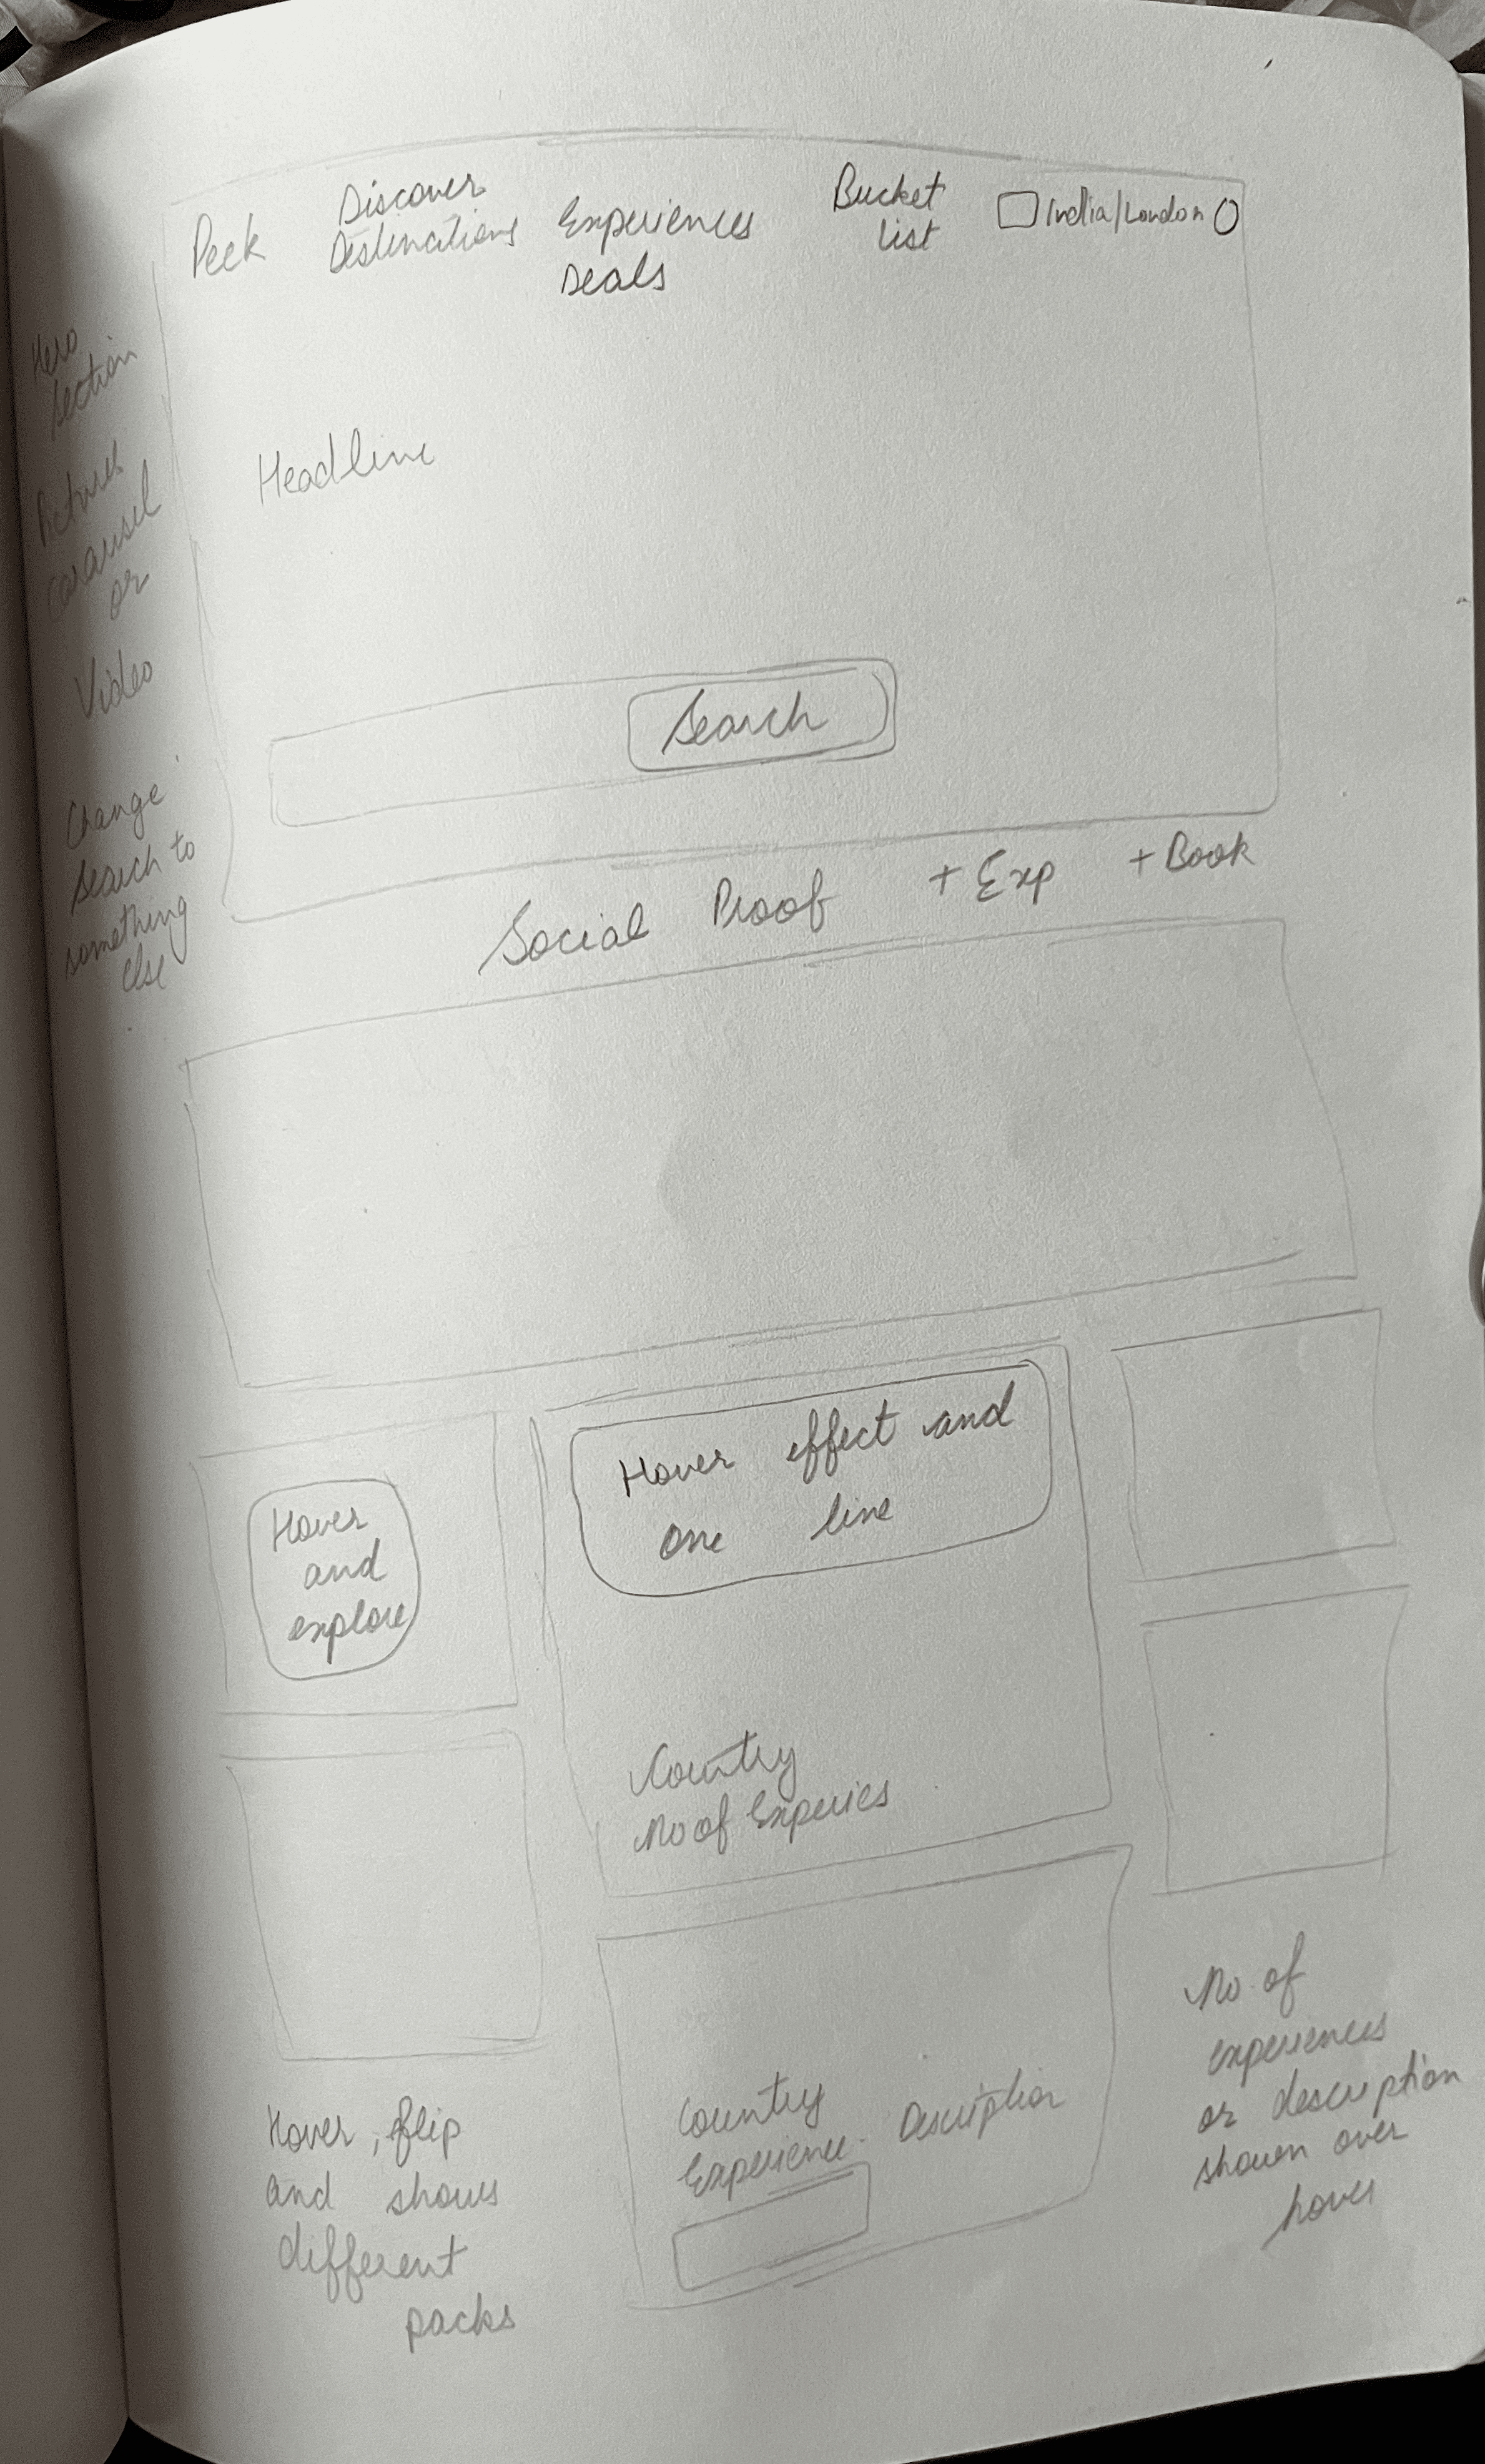 Peek
Discover
Destinations
Experiences
Deals
Bucket
list
India/London
Hero
section
Pictures
carausel
or
Video
Change
search to
something
else
Headline
Search
Social Proof + Exp + Book
Hover
and
explore
Hover effect and
one line
Country
No of Experies
Hover, flip
and shows
different
packs
Country
Experience. Description
No. of
experiences
or description
shown over
hover